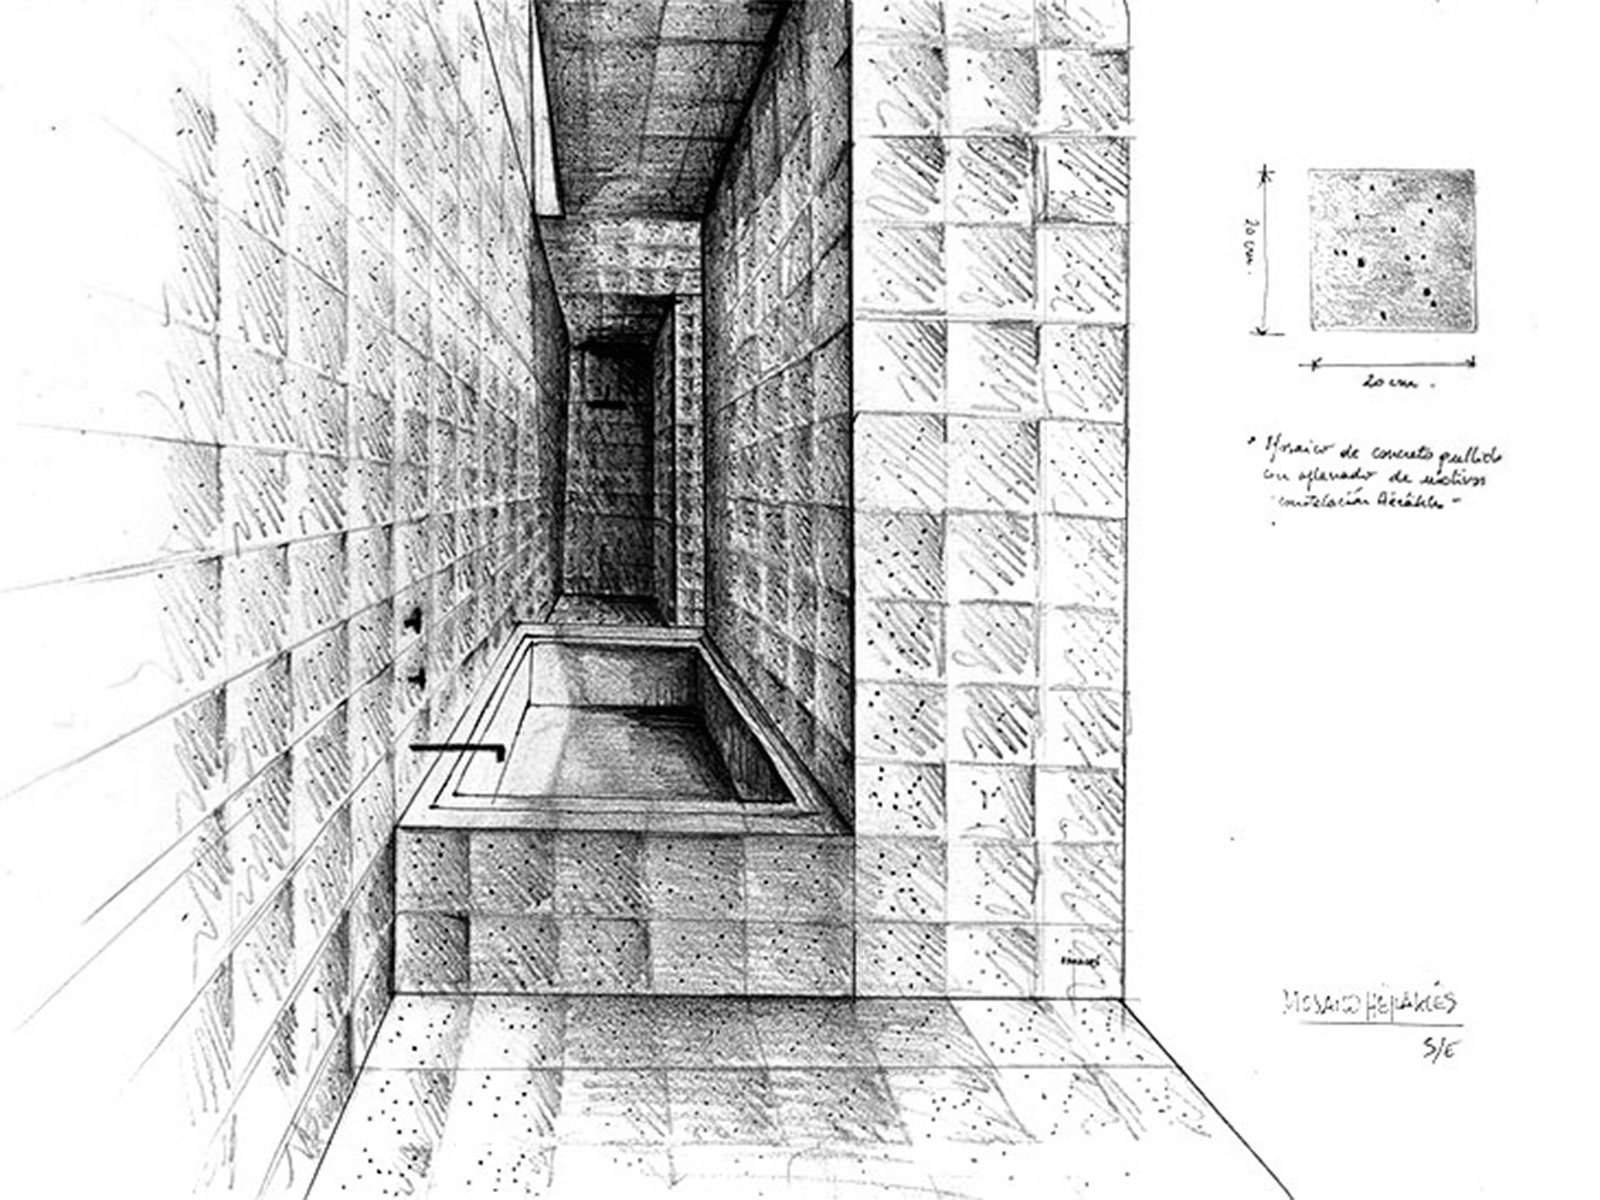 20 cm.
20 cm.
* Mosaico de concreto pullido
con aplanado de motivos
"constelación Herákles"
HERAKLÉS
MOSAICO HERAKLÉS
S/E